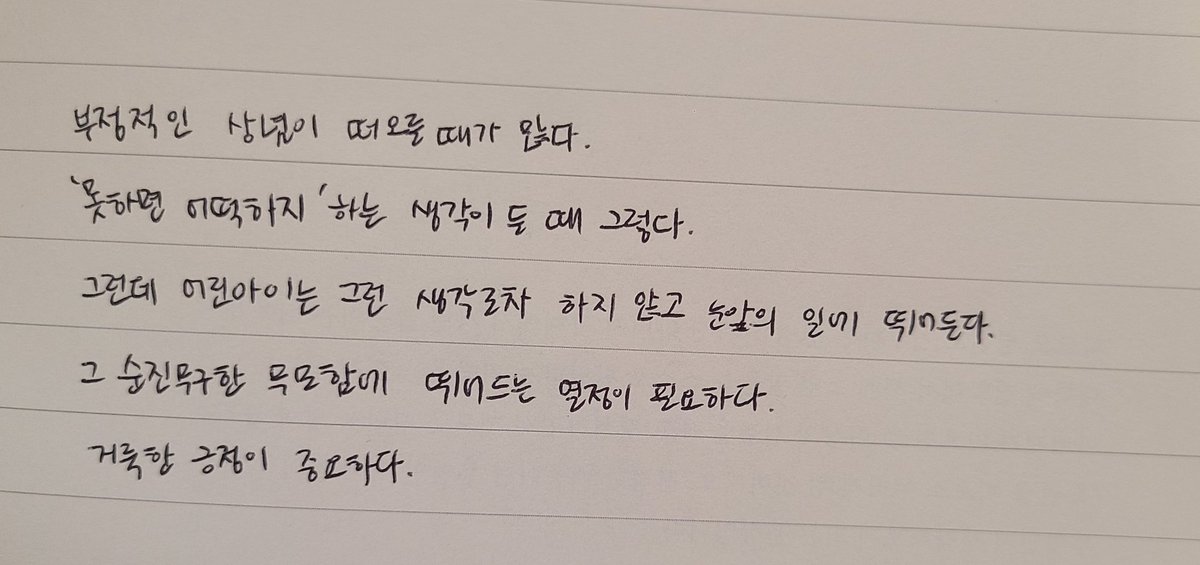 부정적인 상념이 떠오를 때가 많다.
'못하면 어떡하지' 하는 생각이 들 때 그렇다.
그런데 어린아이는 그런 생각조차 하지 않고 눈앞의 일에 뛰어든다.
그 순진무구한 무모함에 뛰어드는 열정이 필요하다.
거룩한 긍정이 중요하다.